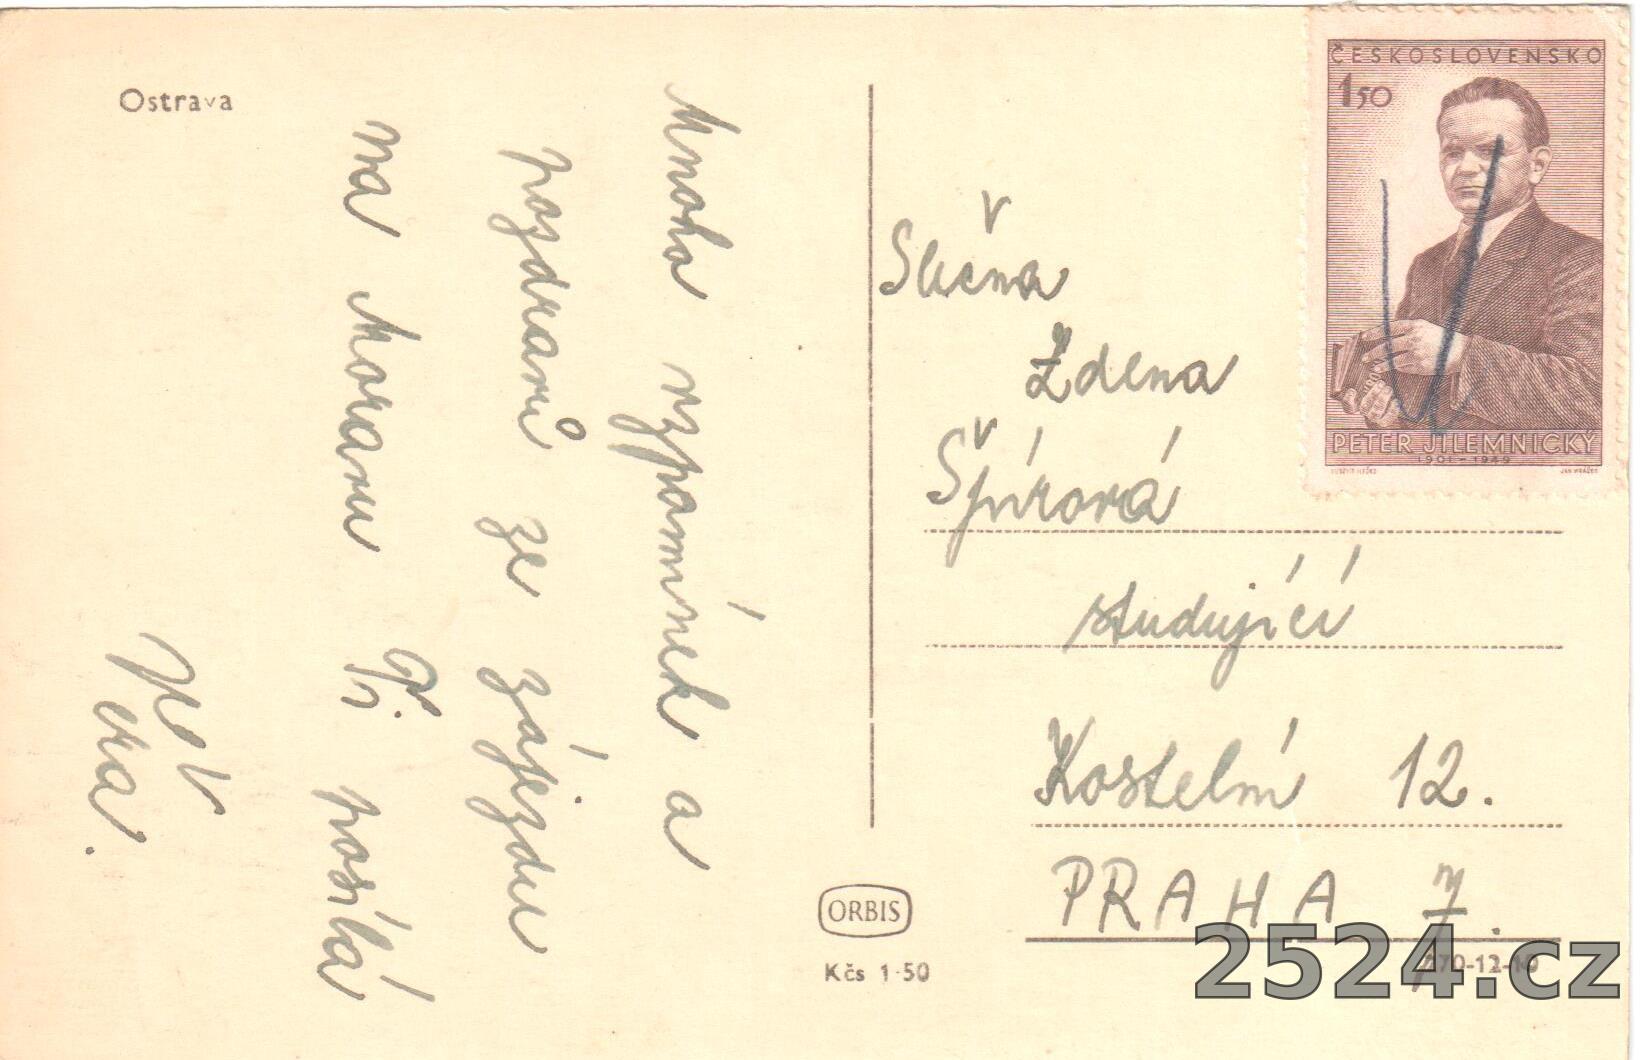 Ostrava
Mnoho vzpomínek a
pozdravů ze zájezdu
na Moravu Ti posílá
Věra.
ČESKOSLOVENSKO
1,50
PETER JILEMNICKÝ
1901-1949
Slečna
Zdena
Špírová
studující
Kostelní 12.
PRAHA 7.
ORBIS
Kčs 1·50
2524.cz